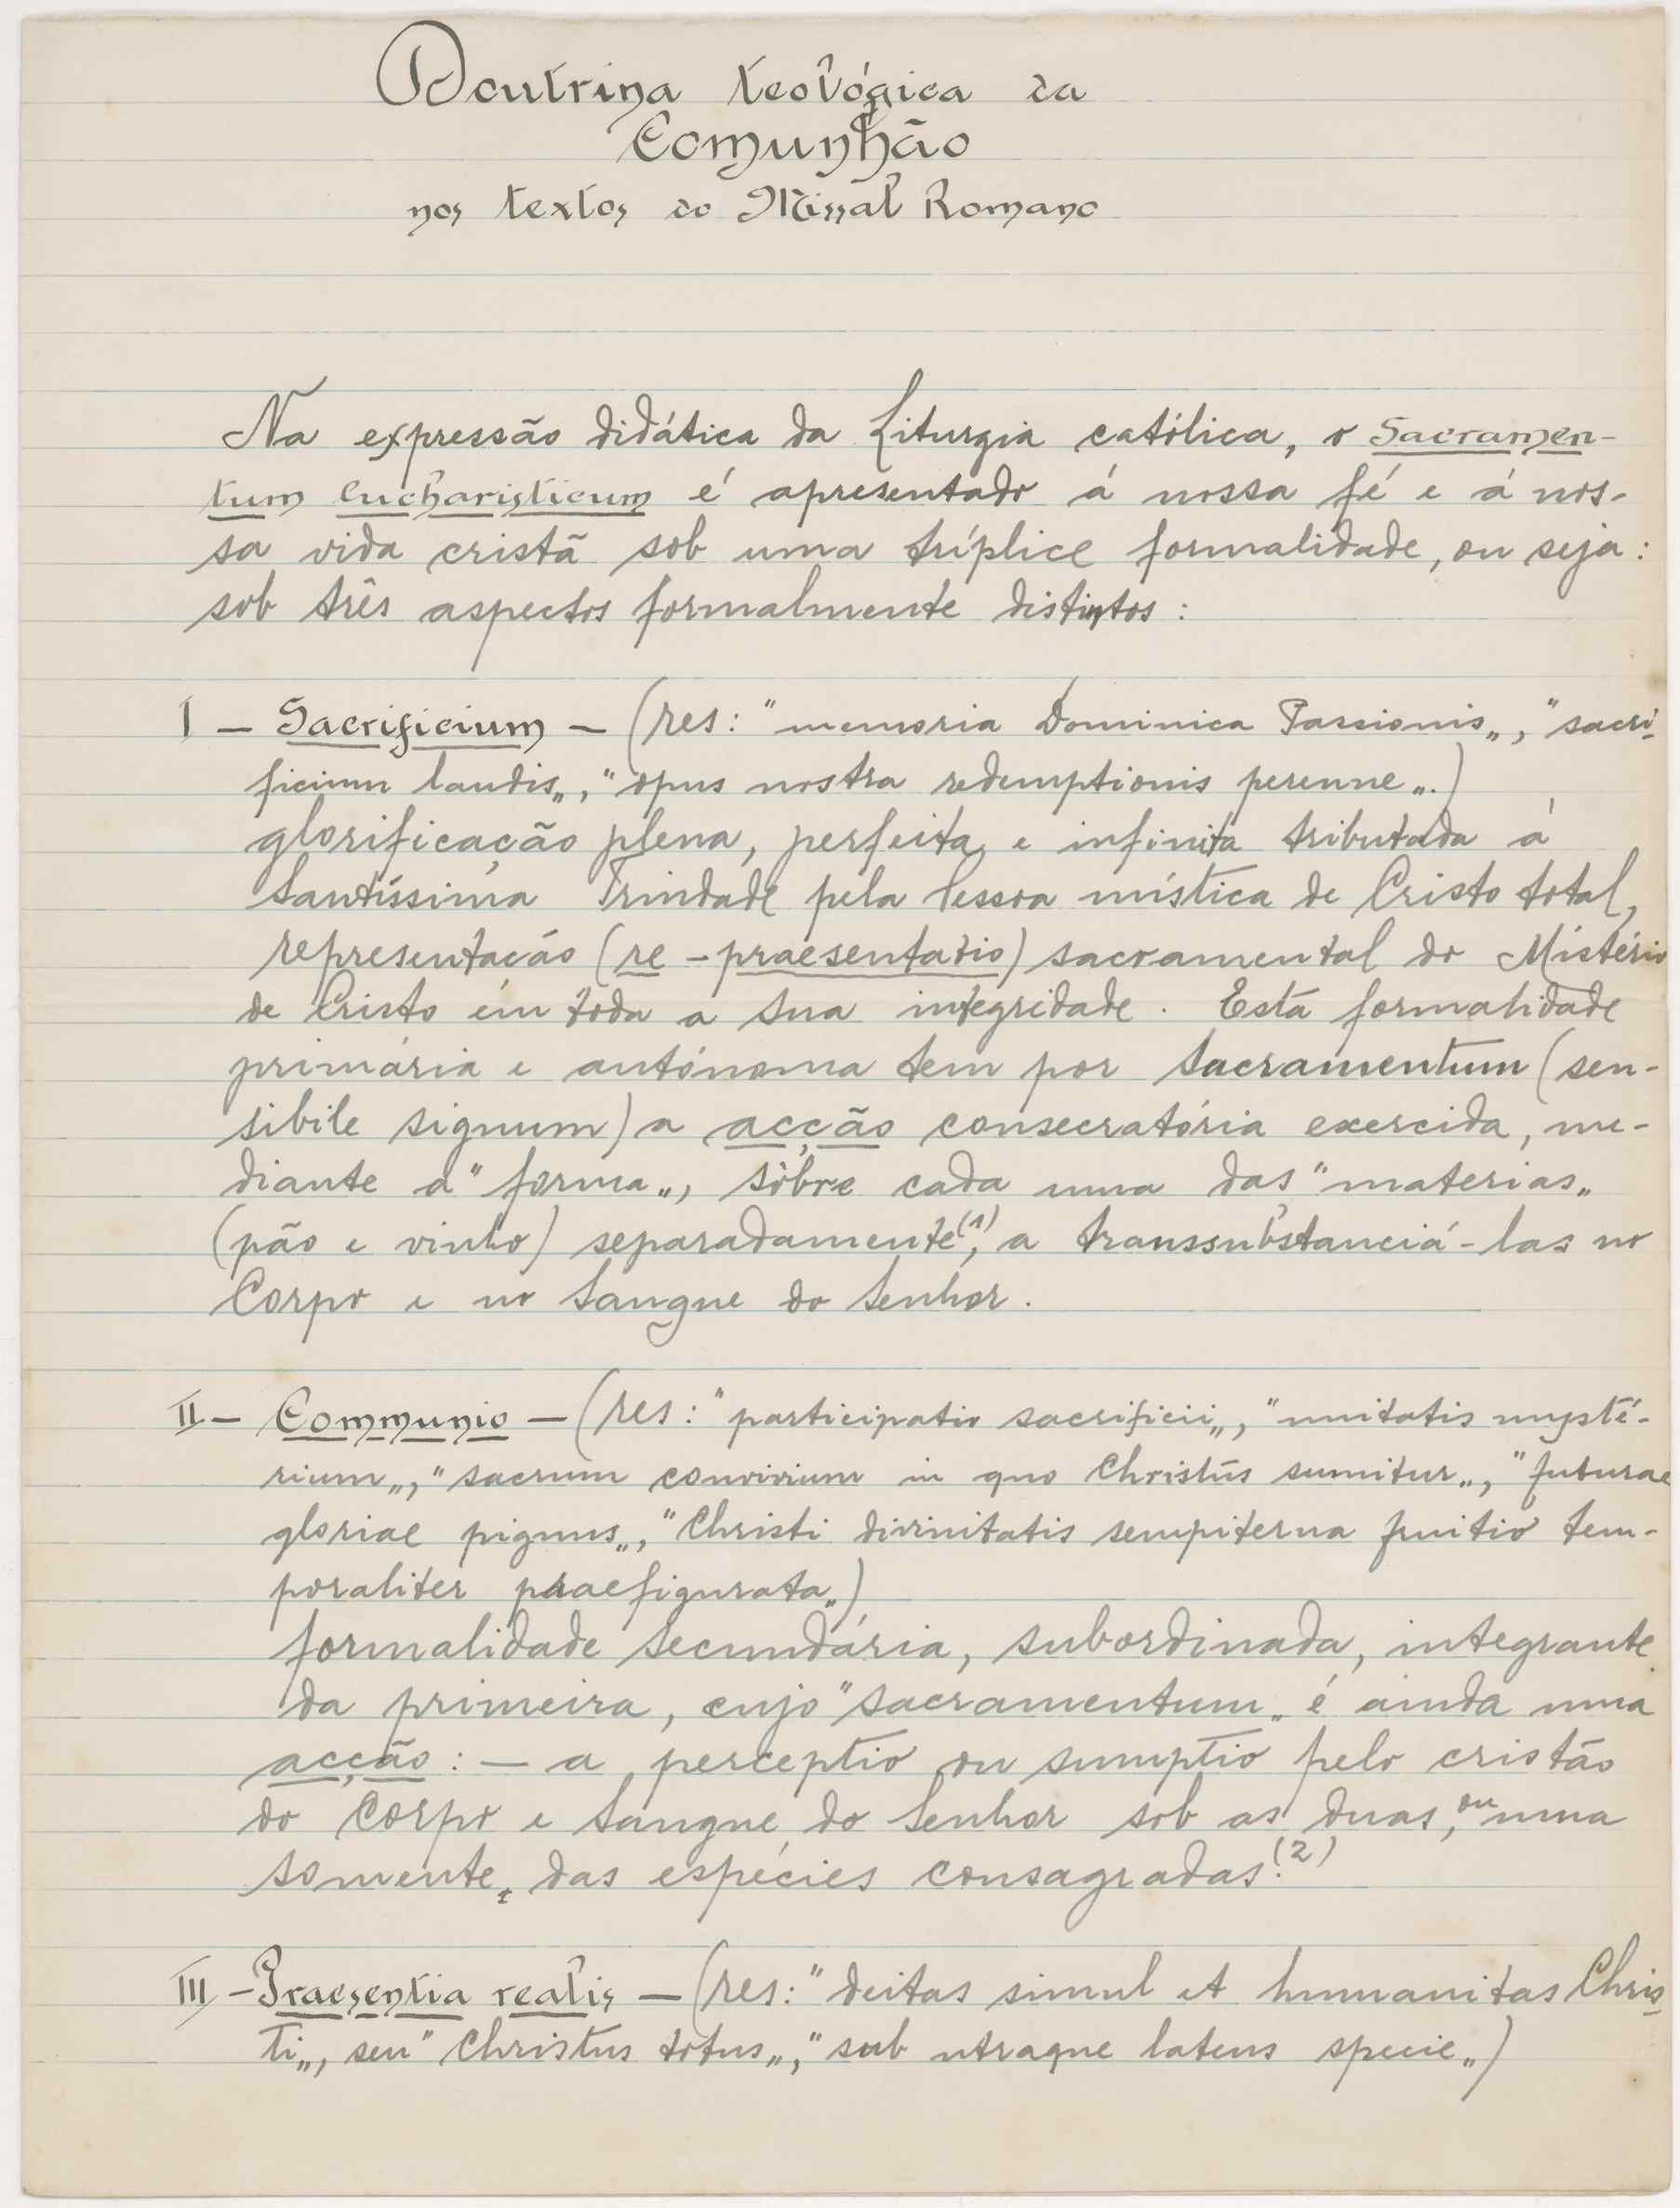 Doutrina teológica da
Comunhão
nos textos do Missal Romano
Na expressão didática da Liturgia católica, o Sacramen-
tum Eucharisticum é apresentado á nossa fé e á nos-
sa vida cristã sob uma tríplice formalidade, ou seja:
sob três aspectos formalmente distintos:
I - Sacrificium - (res: "memoria Dominica Passionis„, "sacri-
ficium laudis„, "opus nostra redemptionis perenne„.)
glorificação plena, perfeita e infinita tributada á
Santíssima Trindade pela Pessoa mística de Cristo total,
representacáo (re-praesentatio) sacramental do Mistério
de Cristo em toda a sua integridade. Esta formalidade
primária e autónoma tem por sacramentum (sen-
sibile signum) a acção consecratória exercida, me-
diante a "forma„, sôbre cada uma das "materias„
(pão e vinho) separadamente(1), a transsubstanciá-las no
Corpo e no Sangue do Senhor.
II - Communio - (res: "participatio sacrificii„, "unitatis mysté-
rium„, "sacrum convivium in quo Christus sumitur„, "futurae
gloriae pignus„, "Christi divinitatis sempiterna fruitio tem-
poraliter praefigurata„)
formalidade secundária, subordinada, integrante
da primeira, cujo "sacramentum„ é ainda uma
acção: - a perceptio ou sumptio pelo cristão
do Corpo e Sangue do Senhor sob as duas, ou uma
somente, das espécies consagradas.(2)
III - Praesentia realis - (res: "deitas simul et humanitas Chris-
ti„, seu "Christus totus„, "sub utraque latens specie„)